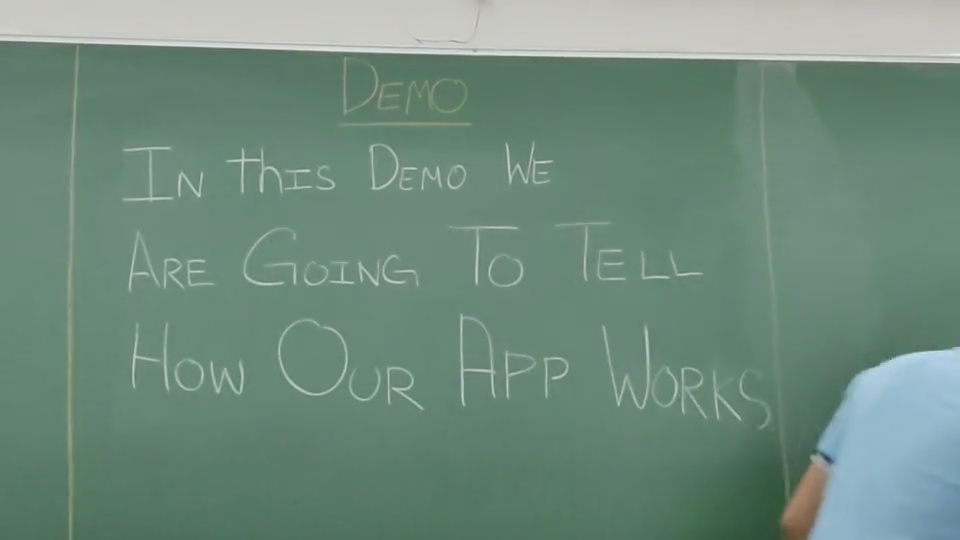 DEMO
IN thIS DEMO WE
ARE GOING TO TELL
HOW OUR APP WORKS